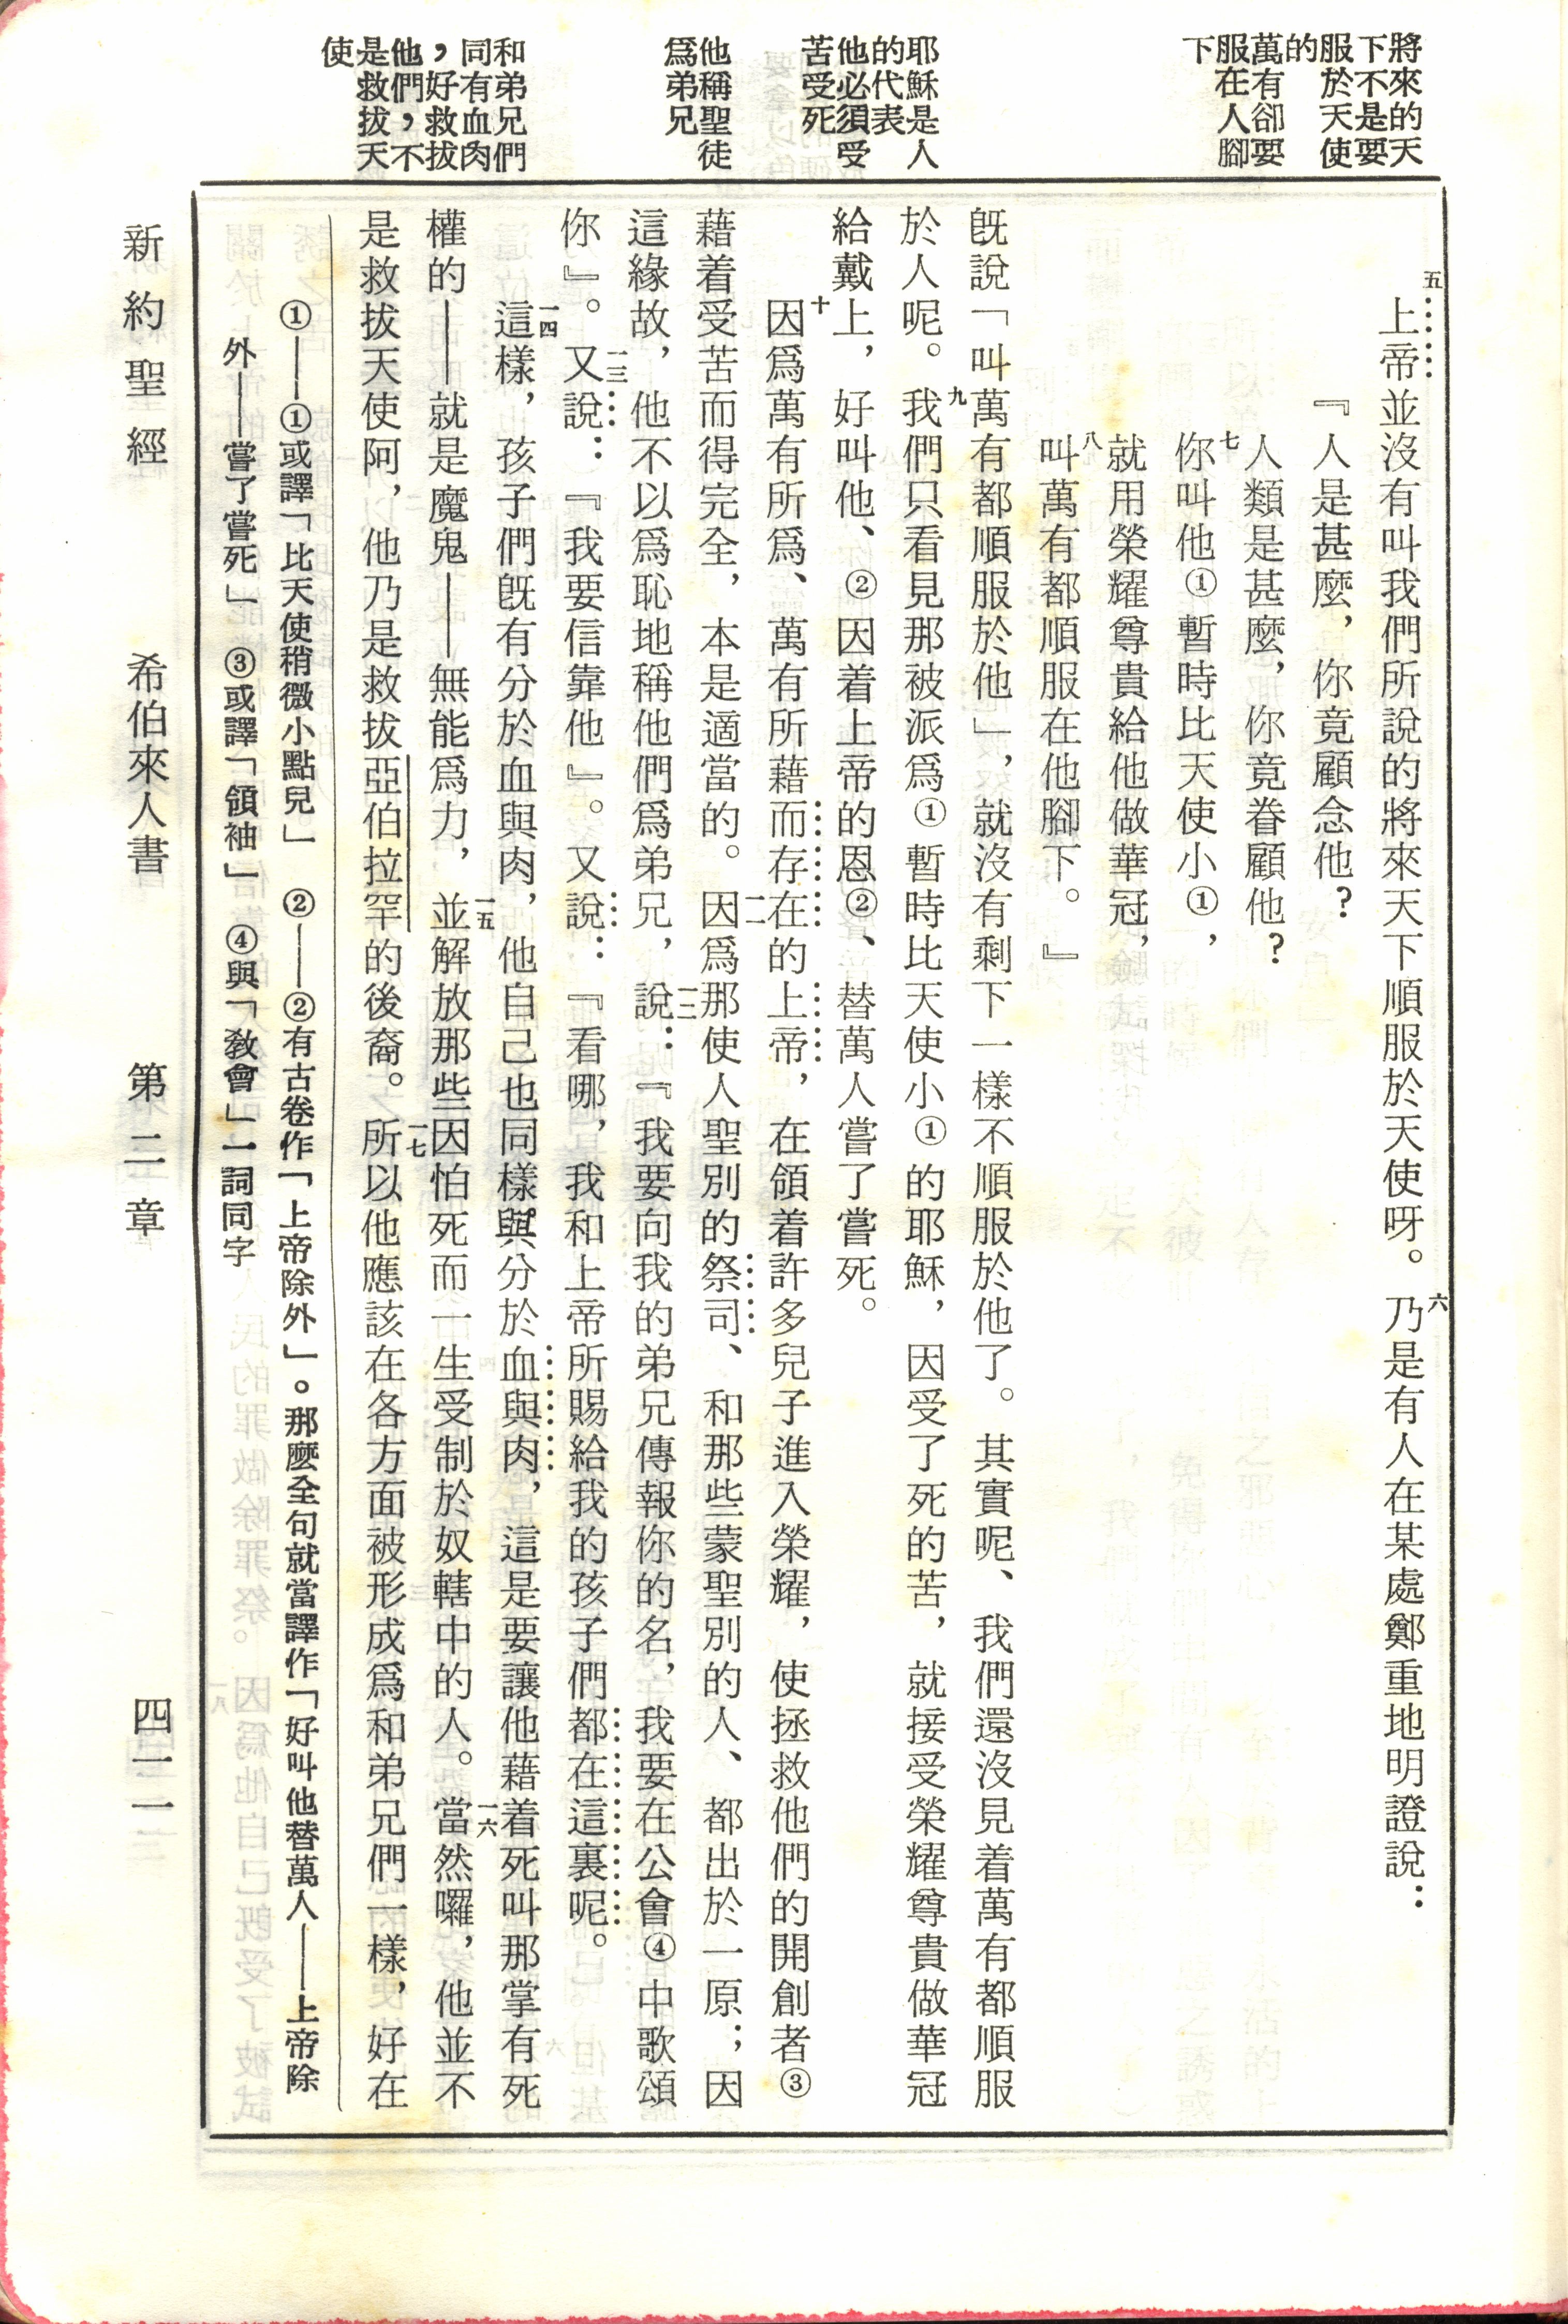 將來的天
下不是要
服於天使
的
萬有卻要
服在人腳
下
耶穌是人
的代表
他必須受
苦受死
他稱聖徒
爲弟兄
和弟兄們
同有血肉
，好救拔
他們，不
是救拔天
使
五上帝並沒有叫我們所說的將來天下順服於天使呀。六乃是有人在某處鄭重地明證說：
『人是甚麼，你竟顧念他？
人類是甚麼，你竟眷顧他？
七你叫他①暫時比天使小①，
就用榮耀尊貴給他做華冠，
八叫萬有都順服在他腳下。』
旣說「叫萬有都順服於他」，就沒有剩下一樣不順服於他了。其實呢、我們還沒見着萬有都順服
於人呢。九我們只看見那被派爲①暫時比天使小①的耶穌，因受了死的苦，就接受榮耀尊貴做華冠
給戴上，好叫他、②因着上帝的恩②、替萬人嘗了嘗死。
十因爲萬有所爲、萬有所藉而存在的上帝，在領着許多兒子進入榮耀，使拯救他們的開創者③
藉着受苦而得完全，本是適當的。一一因爲那使人聖別的祭司、和那些蒙聖別的人、都出於一原；因
這緣故，他不以爲恥地稱他們爲弟兄，一二說：『我要向我的弟兄傳報你的名，我要在公會④中歌頌
你』。一三又說：『我要信靠他』。又說：『看哪，我和上帝所賜給我的孩子們都在這裏呢。
一四這樣，孩子們旣有分於血與肉，他自己也同樣與分於血與肉，這是要讓他藉着死叫那掌有死
權的——就是魔鬼——無能爲力，一五並解放那些因怕死而一生受制於奴轄中的人。一六當然囉，他並不
是救拔天使阿，他乃是救拔亞伯拉罕的後裔。一七所以他應該在各方面被形成爲和弟兄們一樣，好在
①——①或譯「比天使稍微小點兒」　②——②有古卷作「上帝除外」。那麼全句就當譯作「好叫他替萬人——上帝除
外——嘗了嘗死」　③或譯「領袖」　④與「教會」一詞同字
新約聖經　希伯來人書　第二章　四一一